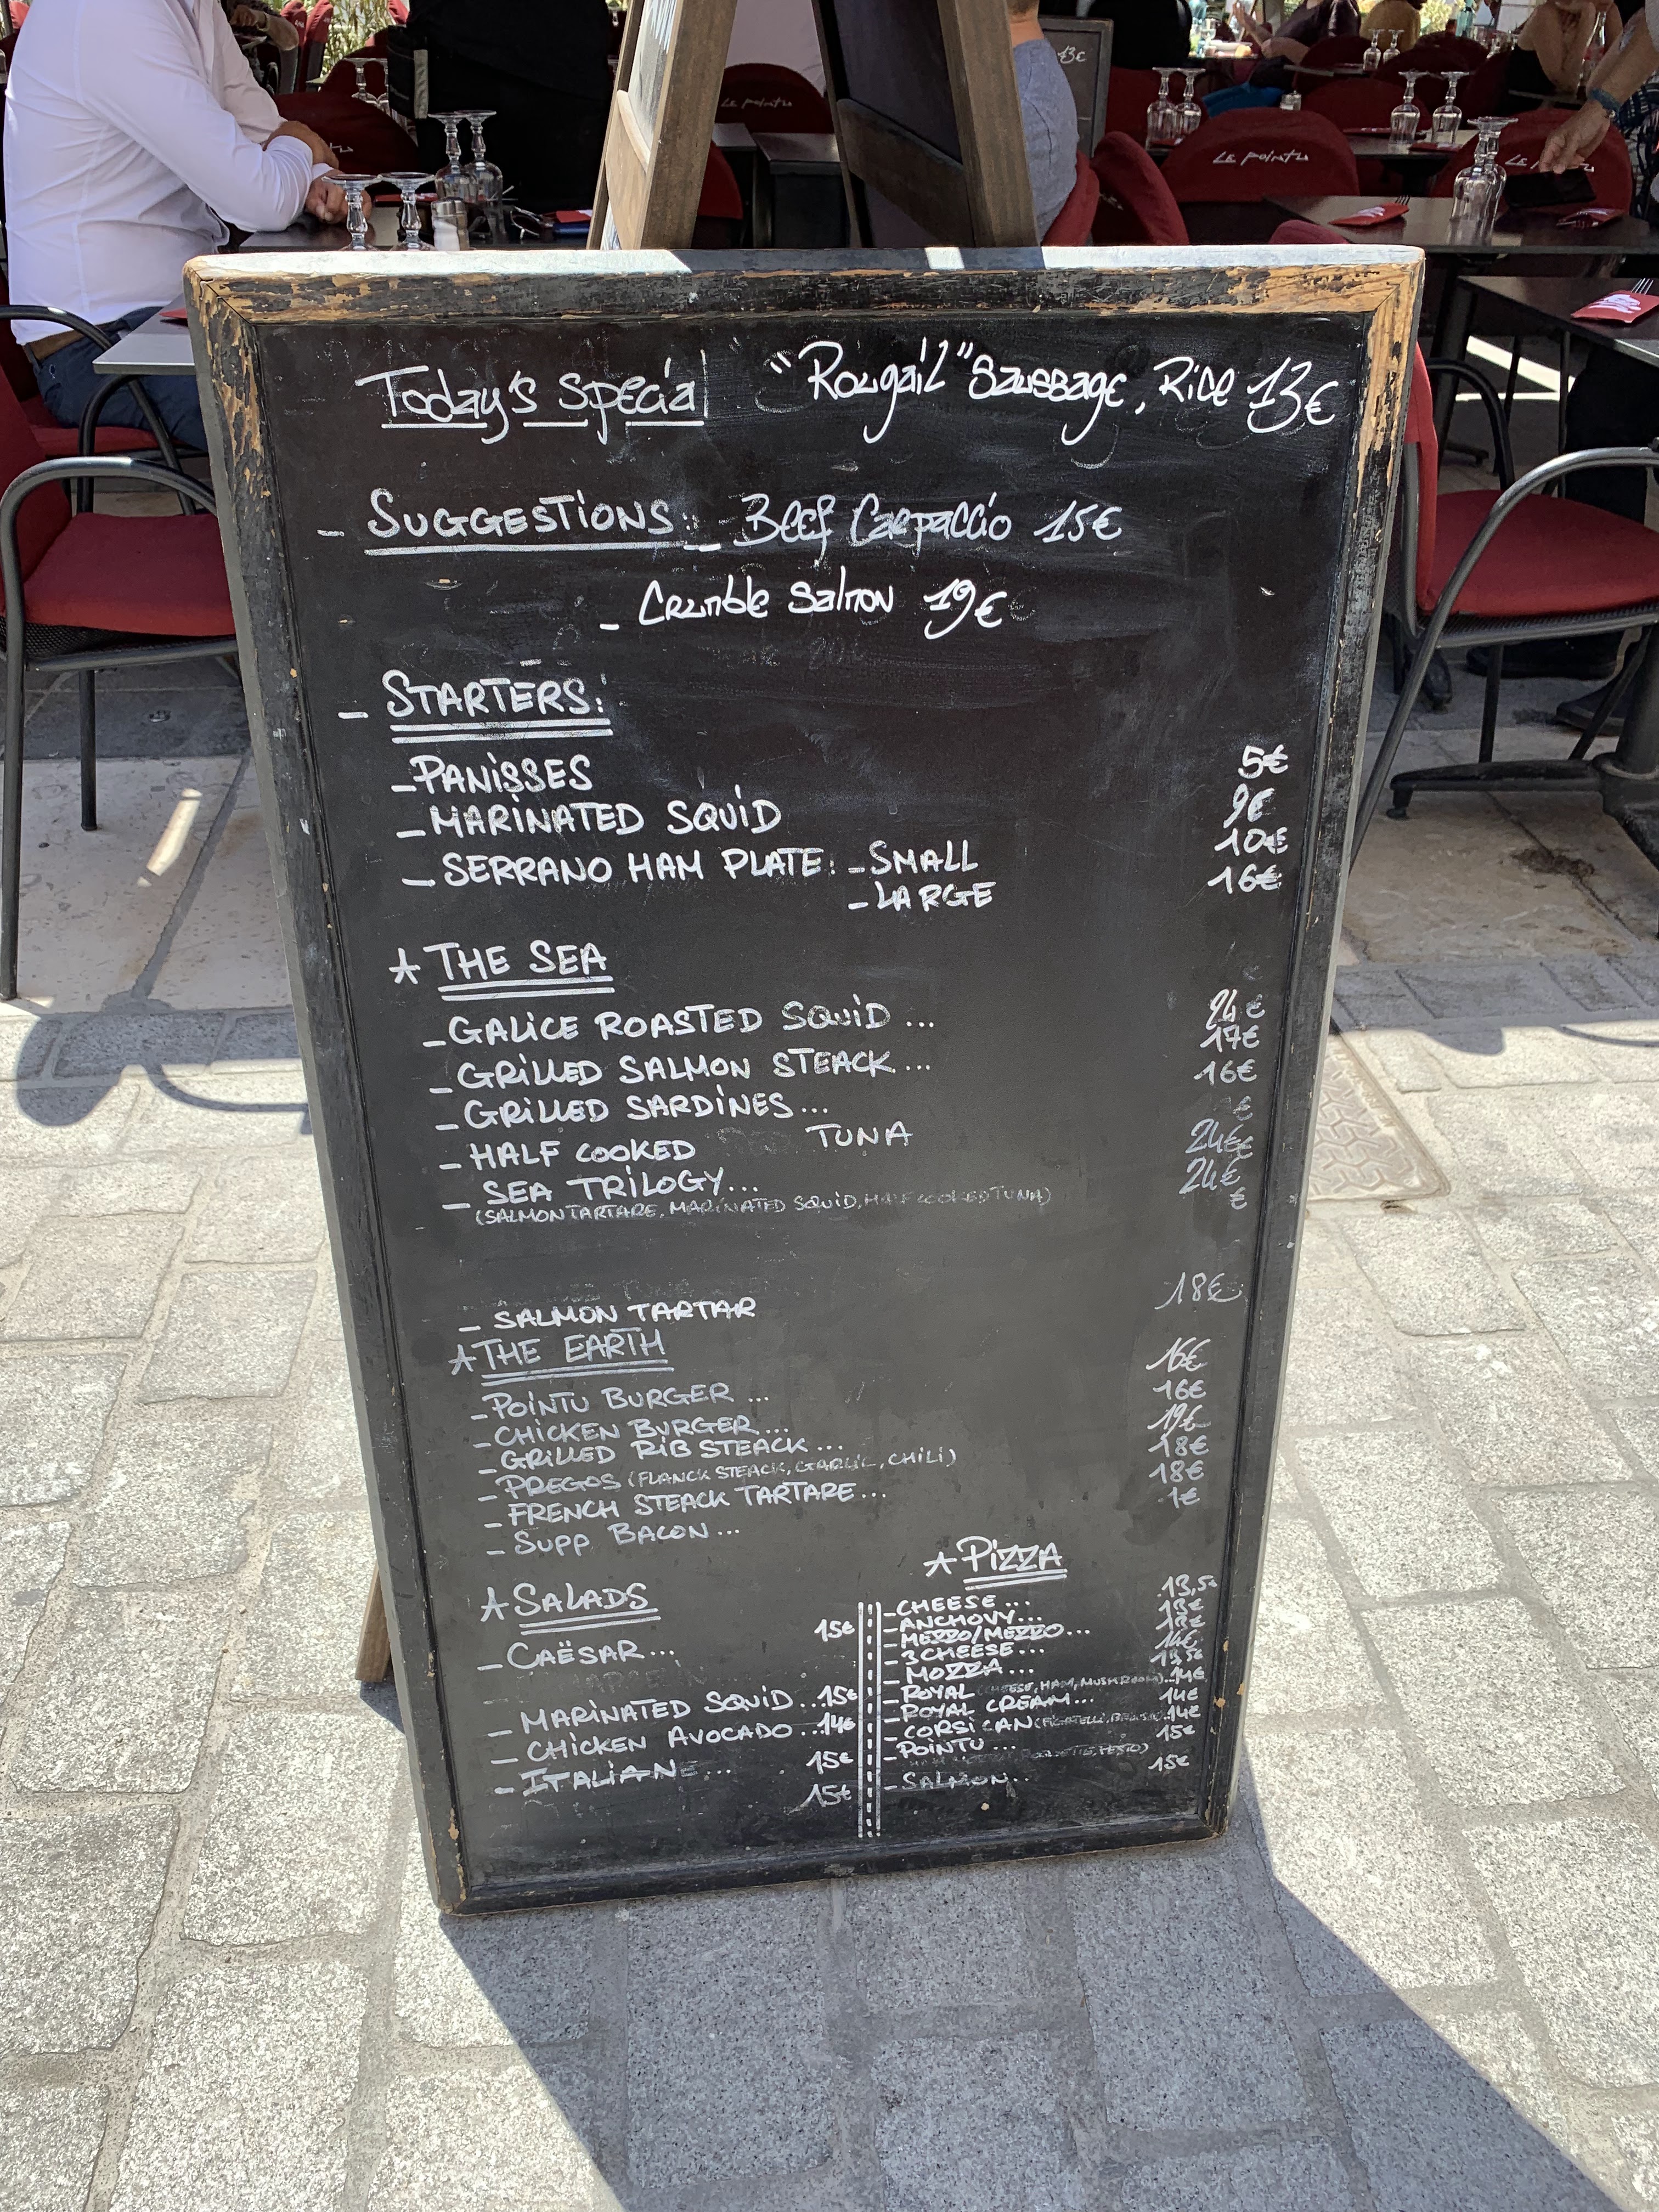 13€
LE POINTU
LE POINTU
LE POINTU
Today's Special "Rougail" Sausage, Rice 13€
- SUGGESTIONS: - Beef Carpaccio 15€
- Crumble Salmon 19€
- STARTERS:
- PANISSES 5€
- MARINATED SQUID 9€
- SERRANO HAM PLATE: - SMALL 10€
- LARGE 16€
* THE SEA
- GALICE ROASTED SQUID ... 24€
- GRILLED SALMON STEACK ... 17€
- GRILLED SARDINES ... 16€
- HALF COOKED TUNA 24€
- SEA TRILOGY ... 24€
(SALMON TARTARE, MARINATED SQUID, HALF COOKED TUNA) €
- SALMON TARTAR 18€
* THE EARTH
- POINTU BURGER ... 16€
- CHICKEN BURGER ... 16€
- GRILLED RIB STEACK ... 19€
- PREGOS (FLANCK STEACK, GARLIC, CHILI) 18€
- FRENCH STEACK TARTARE ... 18€
- SUPP BACON ... 1€
* SALADS
- CAËSAR ... 15€
- MARINATED SQUID ... 15€
- CHICKEN AVOCADO ... 14€
- ITALIANE ... 15€
15€
* PIZZA
- CHEESE ... 13,5€
- ANCHOVY ... 13€
- MEZZO/MEZZO ... 13€
- 3 CHEESE ... 14€
- MOZZA ... 13,5€
- ROYAL (CHEESE, HAM, MUSHROOM) ... 14€
- ROYAL CREAM ... 14€
- CORSICAN (FIGATELLI, 14€
- POINTU ... 15€
PESTO)
- SALMON .. 15€